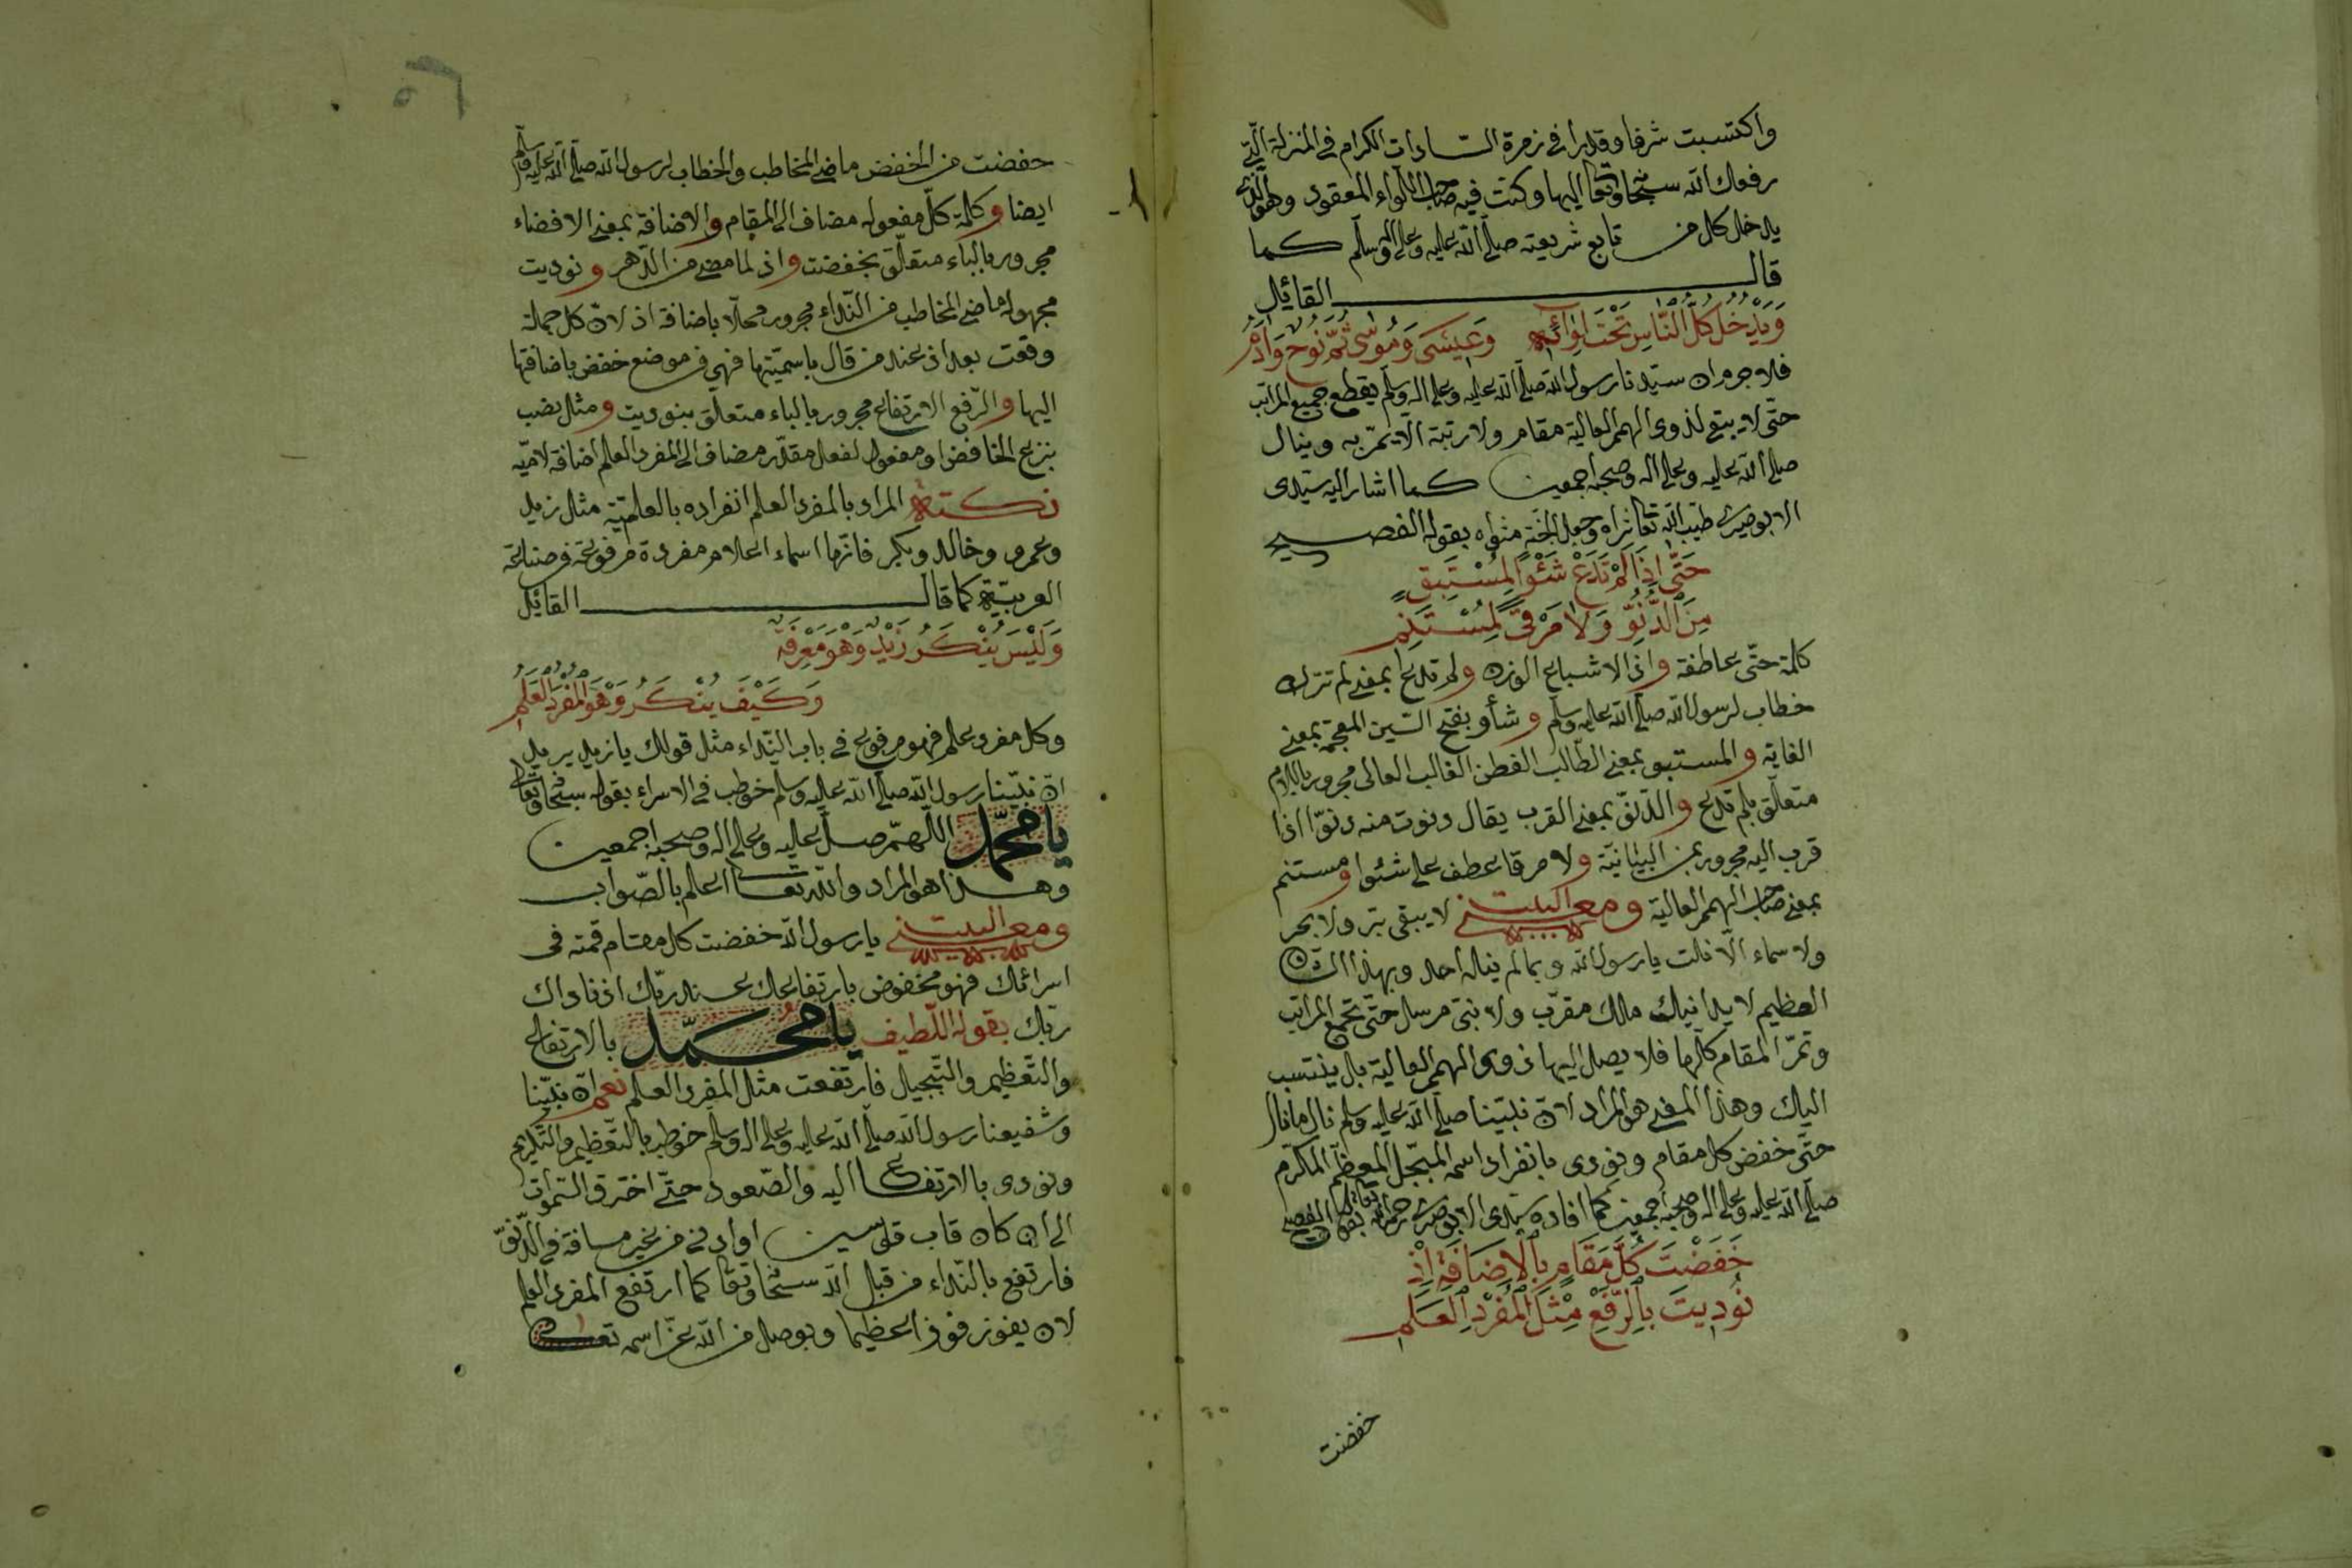 واكتسبت شرفا وقدرا في زمرة السّادات الكرام في المنزلة الّتي
رفعك الله سبحانه وتعا اليها وكنت فيه صاحب اللّواء المعقود وهو الّذي
يدخل كل من تابع شريعته صلّى الله عليه وعلى اله وسلّم كما
قال القائل
وَيَدْخُلُ كُلُّ النَّاسِ تَحْتَ لِوَائِهِ وَعِيْسَى وَمُوسَى ثُمَّ نُوحٌ وَادَمُ
فلا جرم ان سيّدنا رسول الله صلّى الله عليه وعلى اله وسلّم يقطع جميع المراتب
حتّى لا يبقى لذوى الهمم العالية مقام ولا رتبة الّا يمرّ به وينال
صلى الله عليه وعلى اله وصحبه اجمعين كما اشار اليه سيّدى
الابوصيرى طيّب الله تعا ثراه وجعل الجنّة مثواه بقوله الفصيح
حَتّى اِذَا لَمْ تَدَعْ شَئْوًا لِمُسْتَبِقٍ
مِنَ الدُّنُوِّ وَلَا مَرْقًى لِمُسْتَنِمِ
كلمة حتّى عاطفة واذا لاشباع الوزن ولم تدع بمعنى لم تترك
خطاب لرسول الله صلّى الله عليه وسلّم وشأو بفتح الشين المعجمة بمعنى
الغاية والمستبق بمعنى الطّالب الفطن الغالب العالى مجرور باللام
متعلّق بلم تدع والدّنوّ بمعنى القرب يقال دنوت منه دنوّا اذا
قرب اليه مجرور بمن البيانيّة ولا مرقا عطف على شئوا ومستنم
بمعنى صاحب الهمم العالية ومعنى البيت لا يبقى برّ ولا بحر
ولا سماء الّا نلت يارسول الله وبما لم ينال احد وبهذا
العظيم لا يدانيك ملك مقرّب ولا نبىّ مرسل حتّى تجمع المراتب
وتمرّ المقام كلّها فلا يصل اليها ذوى الهمم العالية بل ينتسب
اليك وهذا المعنى هو المراد لانّ نبيّنا صلّى الله عليه وسلم نال ما نال
حتّى خفض كل مقام ونودى بانفراد اسمه المبجّل المعظّم المكرّم
صلّى الله عليه وعلى اله وصحبه اجمعين كما افاده سيّدى الابوصيرى
خَفَضْتَ كُلَّ مَقَامٍ بِالْاِضَافَةِ اِذْ
نُودِيتَ بِالرَّفْعِ مِثْلَ الْمُفْرَدِ الْعَلَمِ
خفضت
٢٥
خفضت من الخفض ماضى المخاطب والخطاب لرسول الله صلّى الله عليه وسلّم
ايضا وكلمة كلّ مفعوله مضاف الى المقام والاضافة بمعنى الافضاء
مجرور بالباء متعلّق بخفضت واذ لما مضى من الدّهر ونوديت
مجهوله ماضى المخاطب من النّداء مجرور محلّا باضافة اذ لانّ كل جملة
وقعت بعد اذ عند من قال باسميّتها فهي في موضع خفض باضافتها
اليها والرّفع الارتفاع مجرور بالباء متعلّق بنوديت ومثل نصب
بنزع الخافض او مفعول لفعل مقدّر مضاف الى المفرد العلم اضافة لاميّه
نكتة المراد بالمفرد العلم انفراده بالعلميّة مثل زيد
وعمرو وخالد وبكر فانّها اسماء اعلام مفردة مرفوعة في صناعة
العربيّة كما قال القائل
وَلَيْسَ يُنْكَرُ زَيْدٌ وَهْوَ مَعْرِفَةٌ
وَكَيْفَ يُنْكَرُ وَهْوَ الْمُفْرَدُ الْعَلَمُ
وكل مفرد علم فهو مرفوع في باب النّداء مثل قولك يا زيد يريد
انّ نبيّنا رسول الله صلّى الله عليه وسلم خوطب في الاسراء بقوله سبحانه وتعالى
يا محمّد اللّهمّ صلّ عليه وعلى اله وصحبه اجمعين
وهذا هو المراد والله تعا اعلم بالصّواب
ومعنى البيت يا رسول الله خفضت كل مقام قمته في
اسرائك فهو مخفوض بارتفاعك عند ربّك اذ ناداك
ربّك بقوله اللّطيف يا محمّد بالارتفاع
والتّعظيم والتّبجيل فارتفعت مثل المفرد العلم نعم انّ نبيّنا
وشفيعنا رسول الله صلّى الله عليه وعلى اله وسلّم خوطب بالتّعظيم والتّكريم
ونودى بالارتفاع اليه والصّعود حتّى اخترق السّموات
الى ان كان قاب قوسين او ادنى من غير مسافة في الدّنوّ
فارتفع بالنّداء من قبل الله سبحانه وتعا كما ارتفع المفرد العلم
لان يفوز فوزا عظيما ويوصل من الله عزّ اسمه تعالى